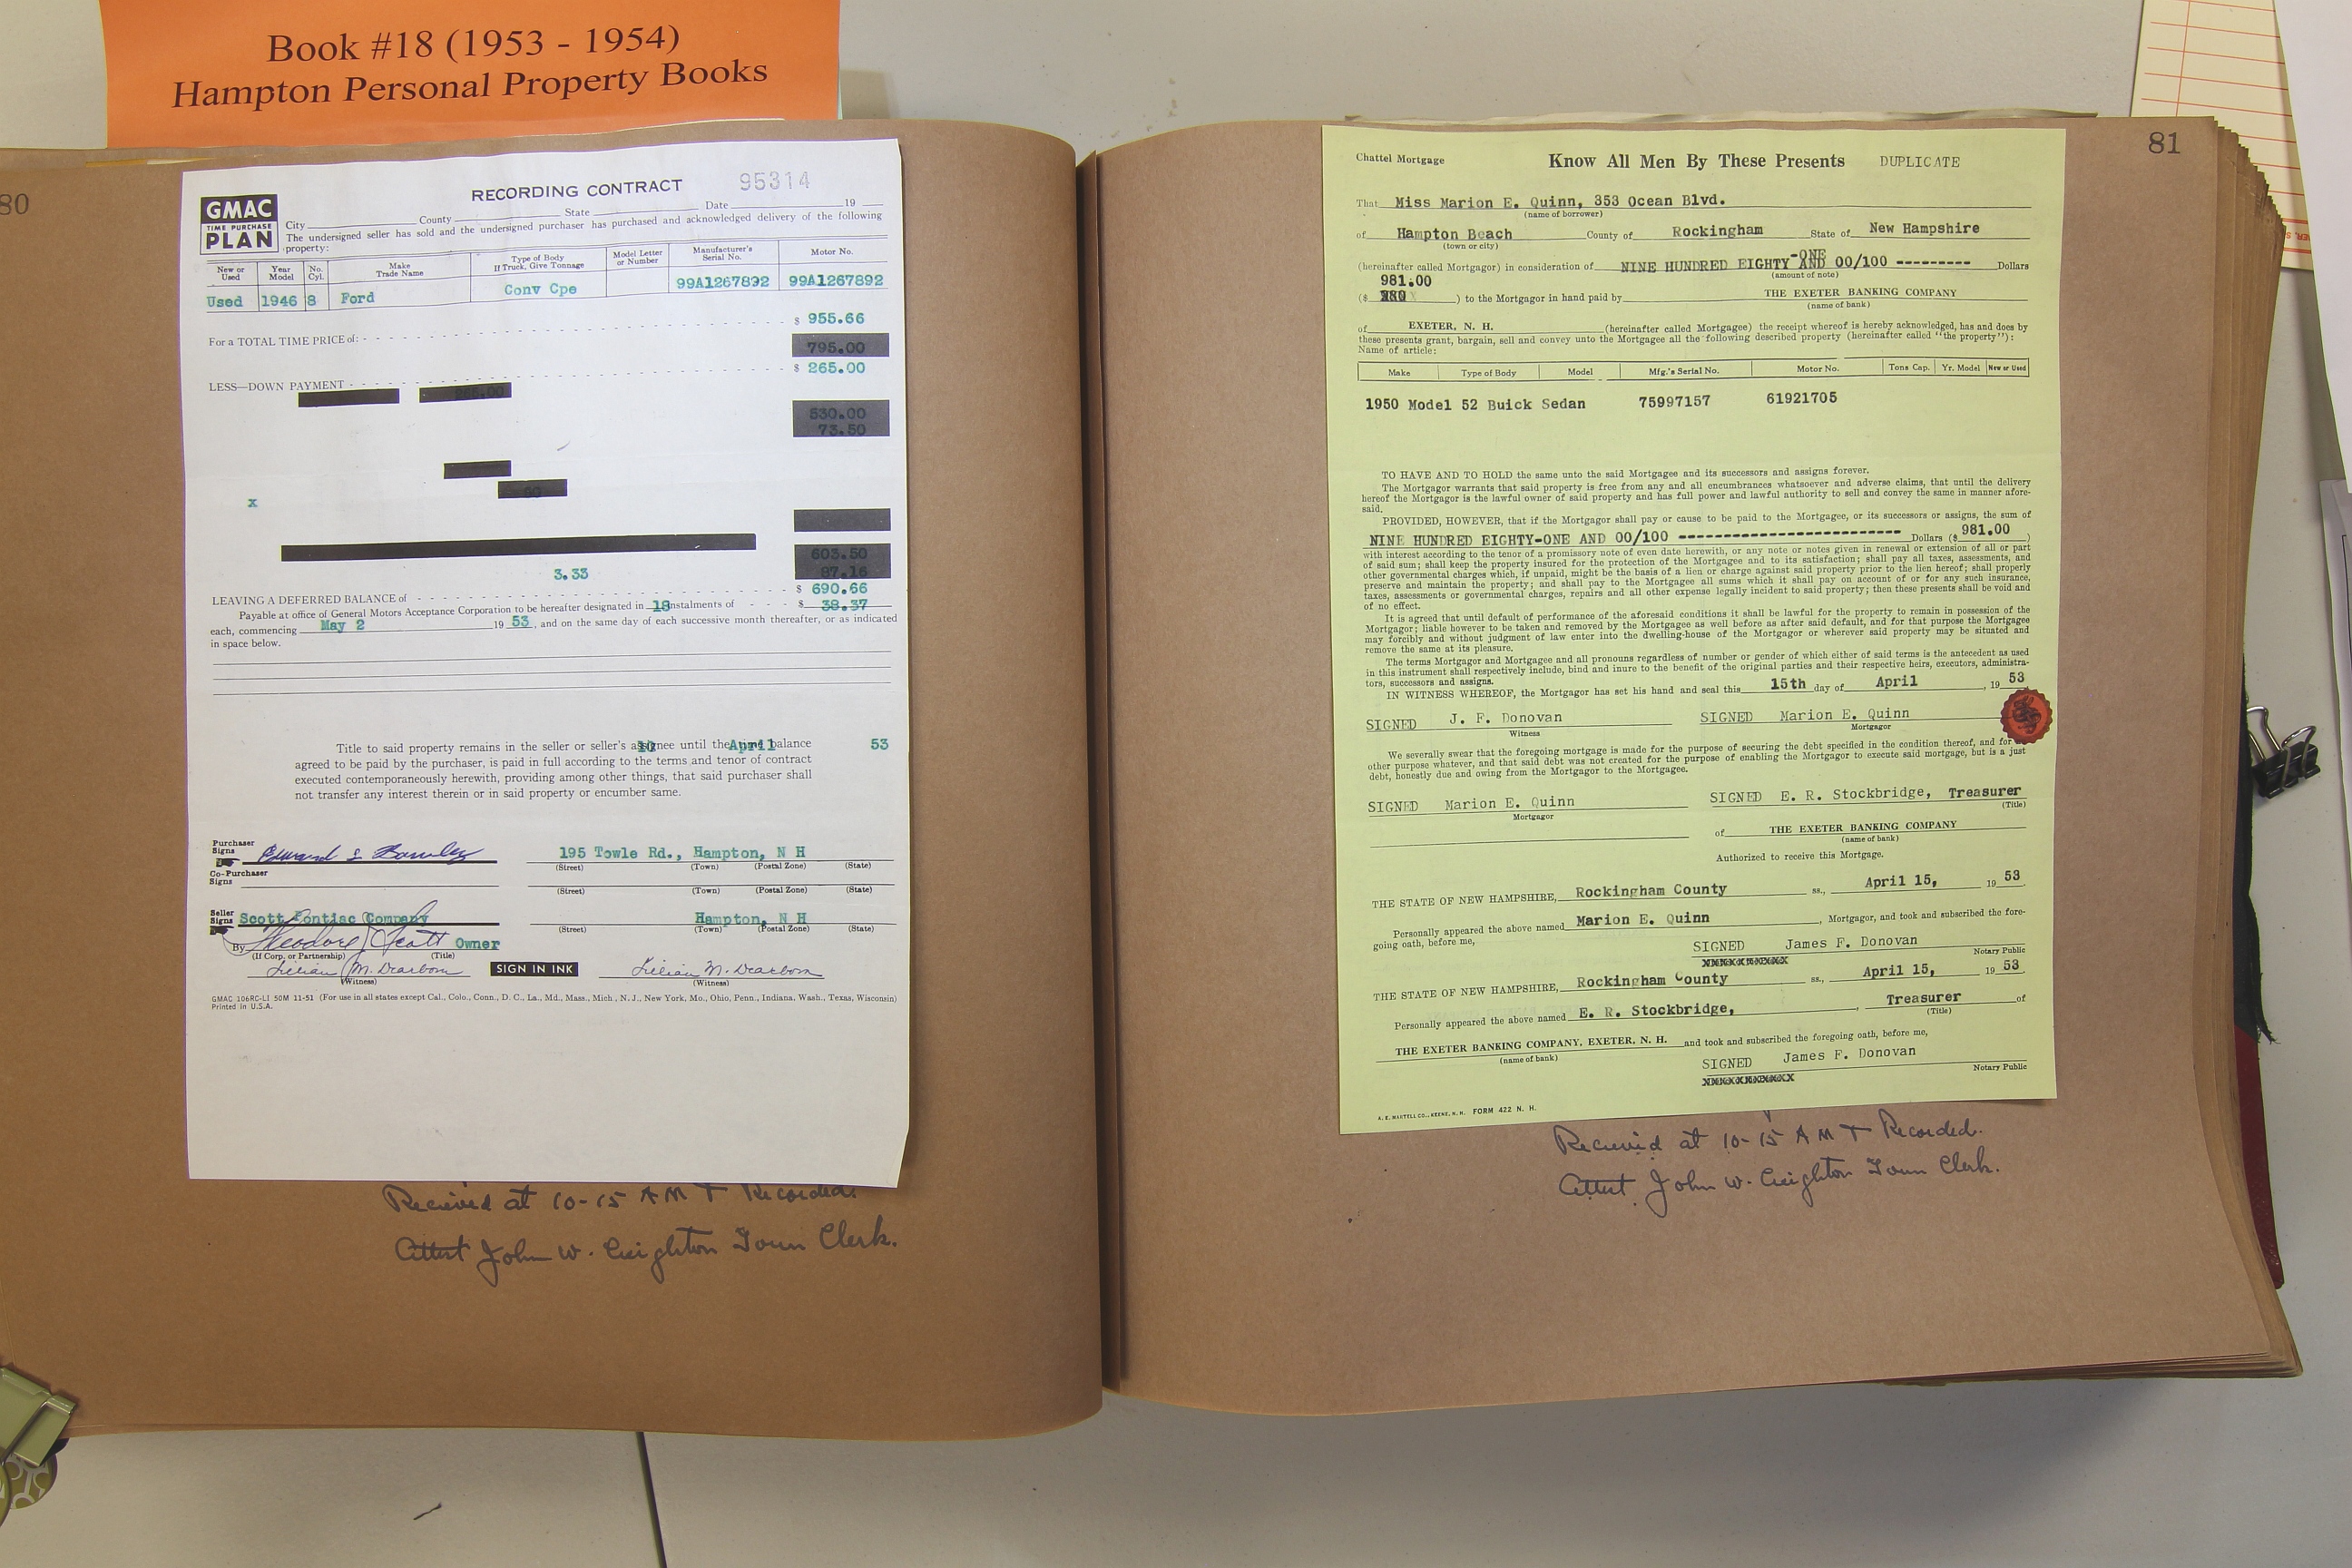 Book #18 (1953 - 1954)
Hampton Personal Property Books
80
GMAC
TIME PURCHASE
PLAN
RECORDING CONTRACT 95314
City County State Date 19
The undersigned seller has sold and the undersigned purchaser has purchased and acknowledged delivery of the following
property:
New or Used Year Model No. Cyl. Make Trade Name Type of Body If Truck, Give Tonnage Model Letter or Number Manufacturer's Serial No. Motor No.
Used 1946 8 Ford Conv Cpe 99A1267892 99A1267892
For a TOTAL TIME PRICE of: $ 955.66
795.00
LESS—DOWN PAYMENT $ 265.00
530.00
73.50
x
603.50
87.16
3.33
LEAVING A DEFERRED BALANCE of $ 690.66
Payable at office of General Motors Acceptance Corporation to be hereafter designated in 18 instalments of $ 38.37
each, commencing May 2 19 53, and on the same day of each successive month thereafter, or as indicated
in space below.
Title to said property remains in the seller or seller's assignee until the April balance 53
agreed to be paid by the purchaser, is paid in full according to the terms and tenor of contract
executed contemporaneously herewith, providing among other things, that said purchaser shall
not transfer any interest therein or in said property or encumber same.
Purchaser Signs Edward 195 Towle Rd., Hampton, N H
(Street) (Town) (Postal Zone) (State)
Co-Purchaser Signs
(Street) (Town) (Postal Zone) (State)
Seller Signs Scott Pontiac Company Hampton, N H
(Street) (Town) (Postal Zone) (State)
By Theodore J Scott Owner
(If Corp. or Partnership) (Title)
Lillian M. Dearborn SIGN IN INK Lillian M. Dearborn
(Witness) (Witness)
GMAC 106RC-LI 50M 11-51 (For use in all states except Cal., Colo., Conn., D. C., La., Md., Mass., Mich., N. J., New York, Mo., Ohio, Penn., Indiana, Wash., Texas, Wisconsin)
Printed in U.S.A.
Recieved at 10-15 A M + Recorded.
Attest John W. Creighton Town Clerk.
81
Chattel Mortgage Know All Men By These Presents DUPLICATE
That Miss Marion E. Quinn, 353 Ocean Blvd.
(name of borrower)
of Hampton Beach County of Rockingham State of New Hampshire
(town or city)
-ONE
(hereinafter called Mortgagor) in consideration of NINE HUNDRED EIGHTY AND 00/100 --------- Dollars
(amount of note)
981.00
($ ) to the Mortgagor in hand paid by THE EXETER BANKING COMPANY
(name of bank)
of EXETER, N. H. (hereinafter called Mortgagee) the receipt whereof is hereby acknowledged, has and does by
these presents grant, bargain, sell and convey unto the Mortgagee all the following described property (hereinafter called "the property"):
Name of article:
Make Type of Body Model Mfg.'s Serial No. Motor No. Tons Cap. Yr. Model New or Used
1950 Model 52 Buick Sedan 75997157 61921705
TO HAVE AND TO HOLD the same unto the said Mortgagee and its successors and assigns forever.
The Mortgagor warrants that said property is free from any and all encumbrances whatsoever and adverse claims, that until the delivery
hereof the Mortgagor is the lawful owner of said property and has full power and lawful authority to sell and convey the same in manner afore-
said.
PROVIDED, HOWEVER, that if the Mortgagor shall pay or cause to be paid to the Mortgagee, or its successors or assigns, the sum of
NINE HUNDRED EIGHTY-ONE AND 00/100 --------------------------- Dollars ($ 981.00 )
with interest according to the tenor of a promissory note of even date herewith, or any note or notes given in renewal or extension of all or part
of said sum; shall keep the property insured for the protection of the Mortgagee and to its satisfaction; shall pay all taxes, assessments, and
other governmental charges which, if unpaid, might be the basis of a lien or charge against said property prior to the lien hereof; shall properly
preserve and maintain the property; and shall pay to the Mortgagee all sums which it shall pay on account of or for any such insurance,
taxes, assessments or governmental charges, repairs and all other expense legally incident to said property; then these presents shall be void and
of no effect.
It is agreed that until default of performance of the aforesaid conditions it shall be lawful for the property to remain in possession of the
Mortgagor; liable however to be taken and removed by the Mortgagee as well before as after said default, and for that purpose the Mortgagee
may forcibly and without judgment of law enter into the dwelling-house of the Mortgagor or wherever said property may be situated and
remove the same at its pleasure.
The terms Mortgagor and Mortgagee and all pronouns regardless of number or gender of which either of said terms is the antecedent as used
in this instrument shall respectively include, bind and inure to the benefit of the original parties and their respective heirs, executors, administra-
tors, successors and assigns.
IN WITNESS WHEREOF, the Mortgagor has set his hand and seal this 15th day of April, 19 53
SIGNED J. F. Donovan SIGNED Marion E. Quinn
Witness Mortgagor
We severally swear that the foregoing mortgage is made for the purpose of securing the debt specified in the condition thereof, and for
other purpose whatever, and that said debt was not created for the purpose of enabling the Mortgagor to execute said mortgage, but is a just
debt, honestly due and owing from the Mortgagor to the Mortgagee.
SIGNED Marion E. Quinn SIGNED E. R. Stockbridge, Treasurer
Mortgagor (Title)
of THE EXETER BANKING COMPANY
(name of bank)
Authorized to receive this Mortgage.
THE STATE OF NEW HAMPSHIRE, Rockingham County ss., April 15, 19 53
Personally appeared the above named Marion E. Quinn, Mortgagor, and took and subscribed the fore-
going oath, before me,
SIGNED James F. Donovan
Notary Public
THE STATE OF NEW HAMPSHIRE, Rockingham County ss., April 15, 19 53
Personally appeared the above named E. R. Stockbridge, Treasurer of
(Title)
THE EXETER BANKING COMPANY, EXETER, N. H. and took and subscribed the foregoing oath, before me,
(name of bank)
SIGNED James F. Donovan
Notary Public
A. E. MARTELL CO., KEENE, N. H. FORM 422 N. H.
Recieved at 10-15 A M + Recorded.
Attest John W. Creighton Town Clerk.